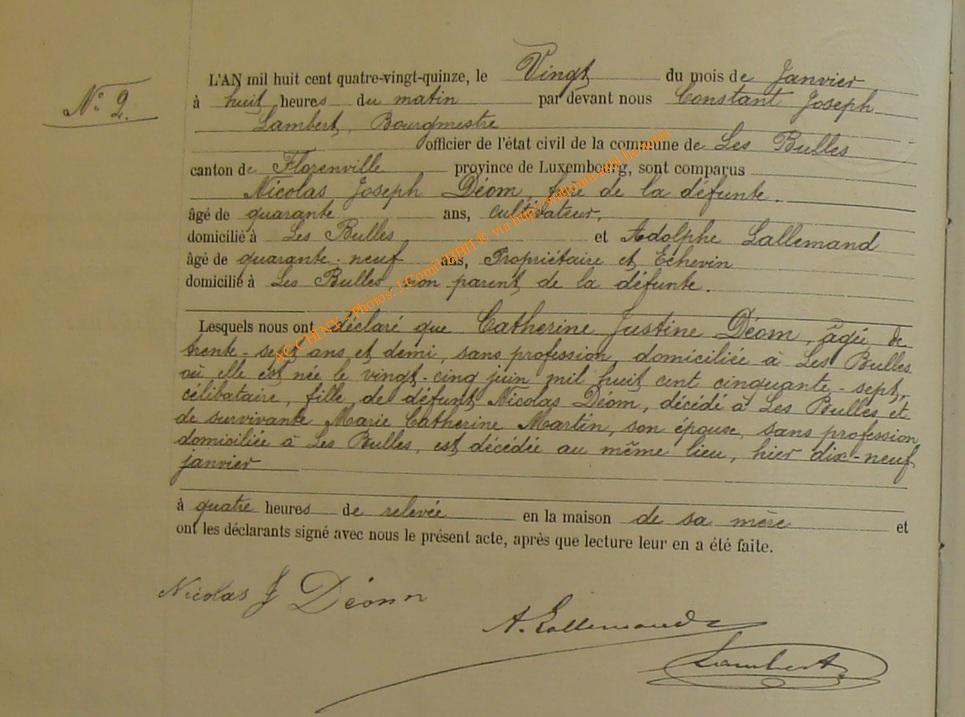 N° 2.
L'AN mil huit cent quatre-vingt-quinze, le Vingt du mois de Janvier
à huit heures du matin par devant nous Constant Joseph
Lambert, Bourgmestre
officier de l'état civil de la commune de Les Bulles
canton de Florenville province de Luxembourg, sont comparus
Nicolas Joseph Déom, frère de la défunte.
âgé de quarante ans, cultivateur,
domicilié à Les Bulles et Adolphe Lallemand
âgé de quarante-neuf ans, Propriétaire et Echevin
domicilié à Les Bulles, non parent de la défunte.
Lesquels nous ont déclaré que Catherine Justine Déom, âgée de
trente-sept ans et demi, sans profession, domiciliée à Les Bulles
où elle est née le vingt-cinq juin mil huit cent cinquante-sept,
célibataire, fille de défunt Nicolas Déom, décédé à Les Bulles et
de survivante Marie Catherine Martin, son épouse, sans profession
domiciliée à Les Bulles, est décédée au même lieu, hier dix-neuf
janvier
à quatre heures de relevée en la maison de sa mère et
ont les déclarants signé avec nous le présent acte, après que lecture leur en a été faite.
Nicolas J Déom
A. Lallemand
Lambert
ACCHENY - Photos: J.Comi via